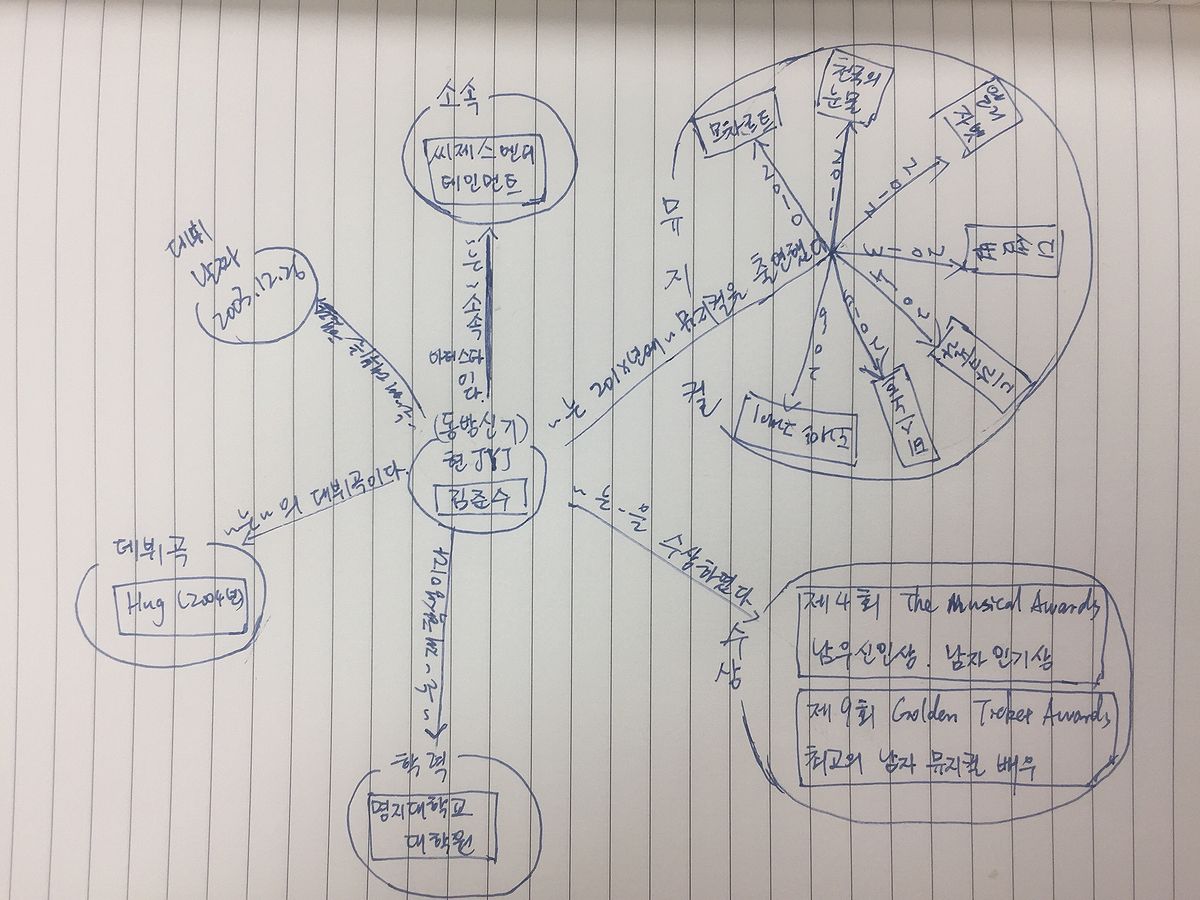 소속
씨제스엔터
테인먼트
~는 ~소속
아티스트
이다.
데뷔
날짜
2003.12.26
(동방신기)
현 JYJ
김준수
~는~의 데뷔곡이다.
데뷔곡
Hug (2004년)
학력
명지대학교
대학원
뮤
지
컬
~는 201x년에 ~ 뮤지컬을 출연했다
모차르트
2010
천국의
눈물
2011
엘리
자벳
2012
디셈
버
2013
드라큘라
2014
데스노트
2015
도리안 그레이
~는 ~을 수상하였다
수
상
제4회 The Musical Awards
남우신인상. 남자인기상
제9회 Golden Ticket Awards
최고의 남자 뮤지컬 배우